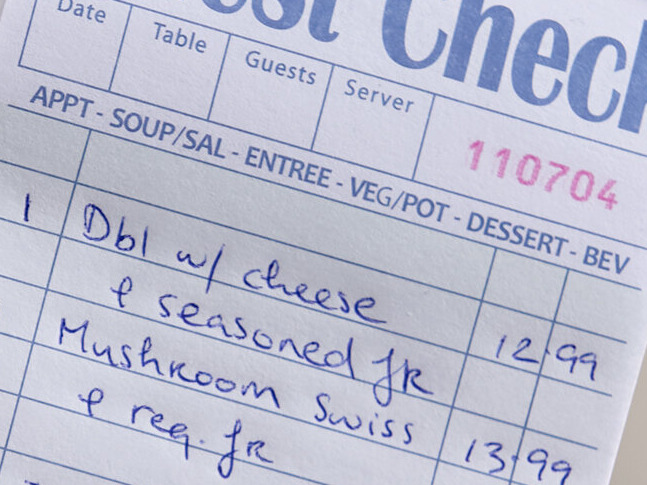 Date Table Guests Server
110704
APPT - SOUP/SAL - ENTREE - VEG/POT - DESSERT - BEV
1 Dbl w/ cheese
& seasoned fr 12.99
Mushroom Swiss
& reg. fr 13.99